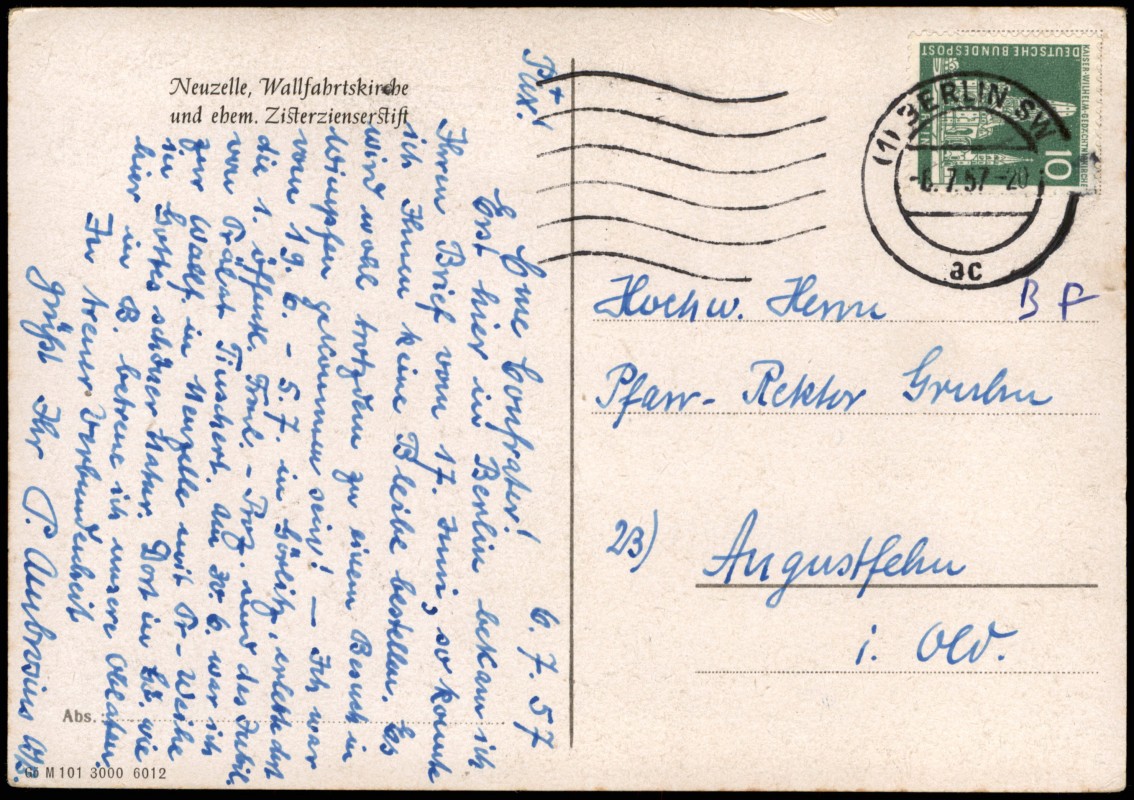 Neuzelle, Wallfahrtskirche
und ehem. Zisterzienserstift
+
Pax!
6. 7. 57
Eme Confrater!
Erst hier in Berlin bekam ich
Ihren Brief vom 17. Juni, so konnte
ich Ihnen keine Bleibe bestellen. Es
wird wohl trotzdem zu einem Besuch in
Wimpfen gekommen sein! — Ich war
vom 19. 6. - 5. 7. in Görlitz, erlebte dort
die 1. öffentl. Fronl. - Proz. und das Jubil.
von Prälat Tinschert. Am 30. 6. war ich
zur Wallf. in Neuzelle mit Pr - Weihe
in Gottes schöner Natur. Dort in Gö. wie
hier in B. betreue ich unsere Oblaten.
In treuer Verbundenheit
grüßt Ihr P. Ambrosius
Abs.
Gö M 101 3000 6012
DEUTSCHE BUNDESPOST
KAISER-WILHELM-GEDÄCHTNISKIRCHE
10
(1) BERLIN SW
-6. 7. 57 -20
ac
Hochw. Herrn
BP
Pfarr- Rektor Gruben
23)
Augustfehn
i. Old.